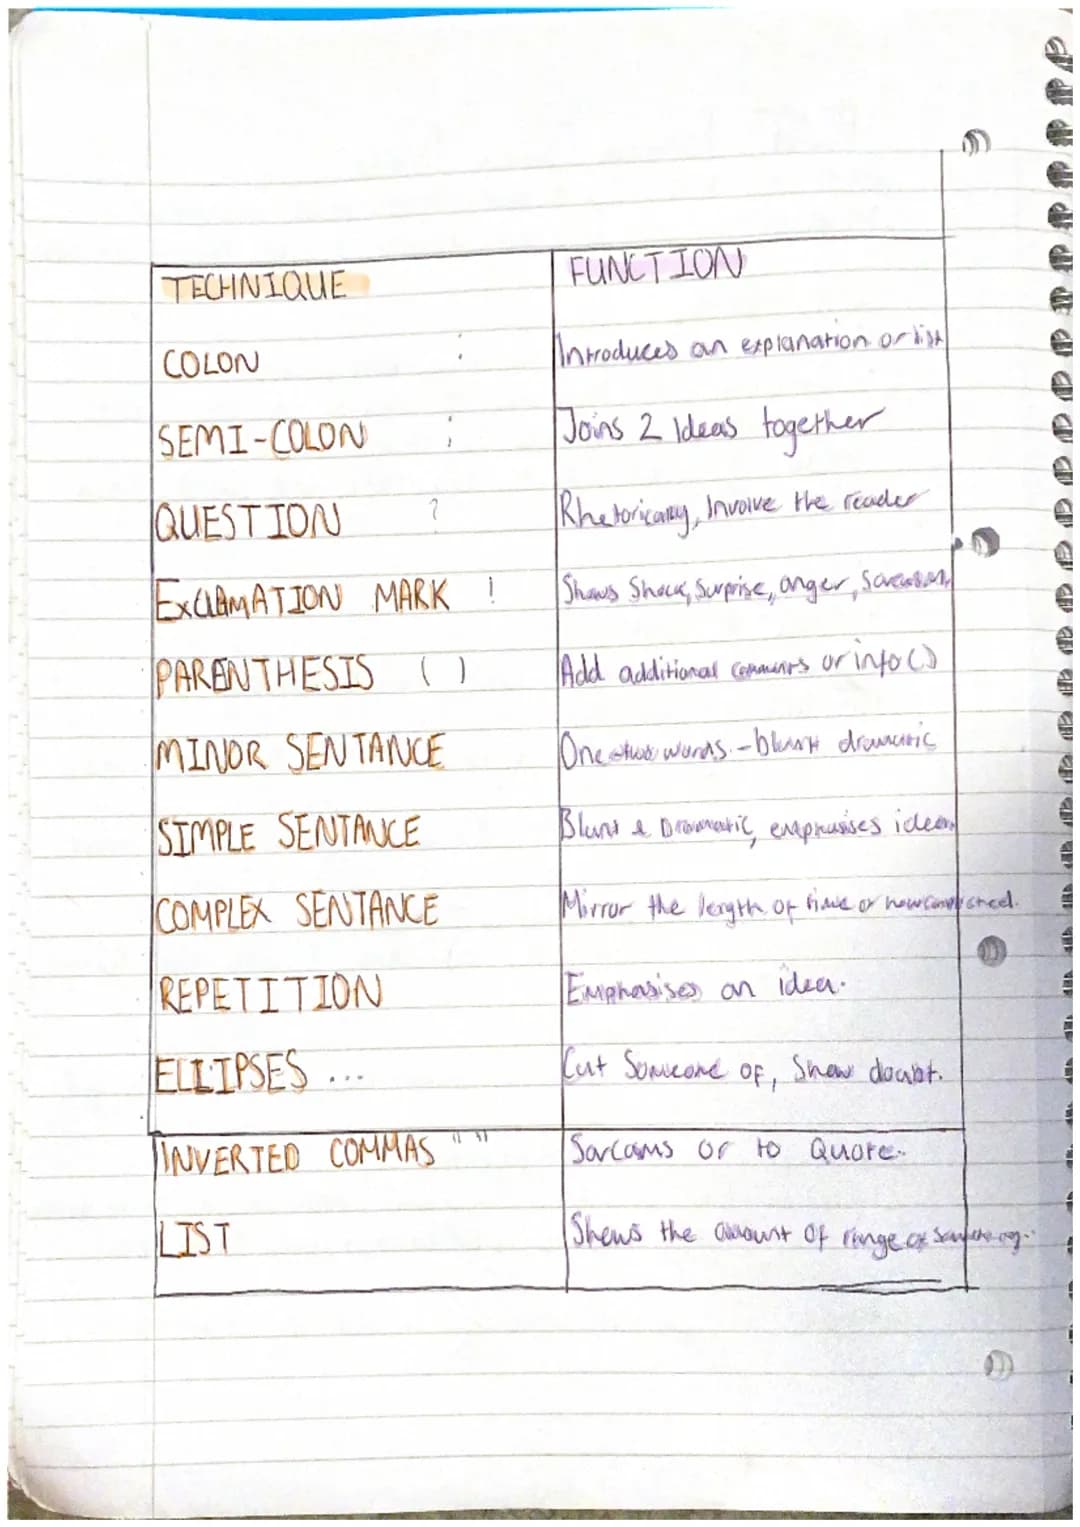 TECHNIQUE FUNCTION
COLON : Introduces an explanation or list
SEMI-COLON ; Joins 2 Ideas together
QUESTION ? Rhetorically, Involve the reader
EXCLAMATION MARK ! Shows Shock, Surprise, anger, Sarcasm
PARENTHESIS ( ) Add additional comments or info ()
MINOR SENTANCE One words - blunt dramatic
SIMPLE SENTANCE Blunt & Dramatic, emphasises idea
COMPLEX SENTANCE Mirror the length of time or how
REPETITION Emphasises an idea.
ELLIPSES ... Cut Someone of, Show doubt.
INVERTED COMMAS " " Sarcams or to Quote.
LIST Shows the amount of range of something.